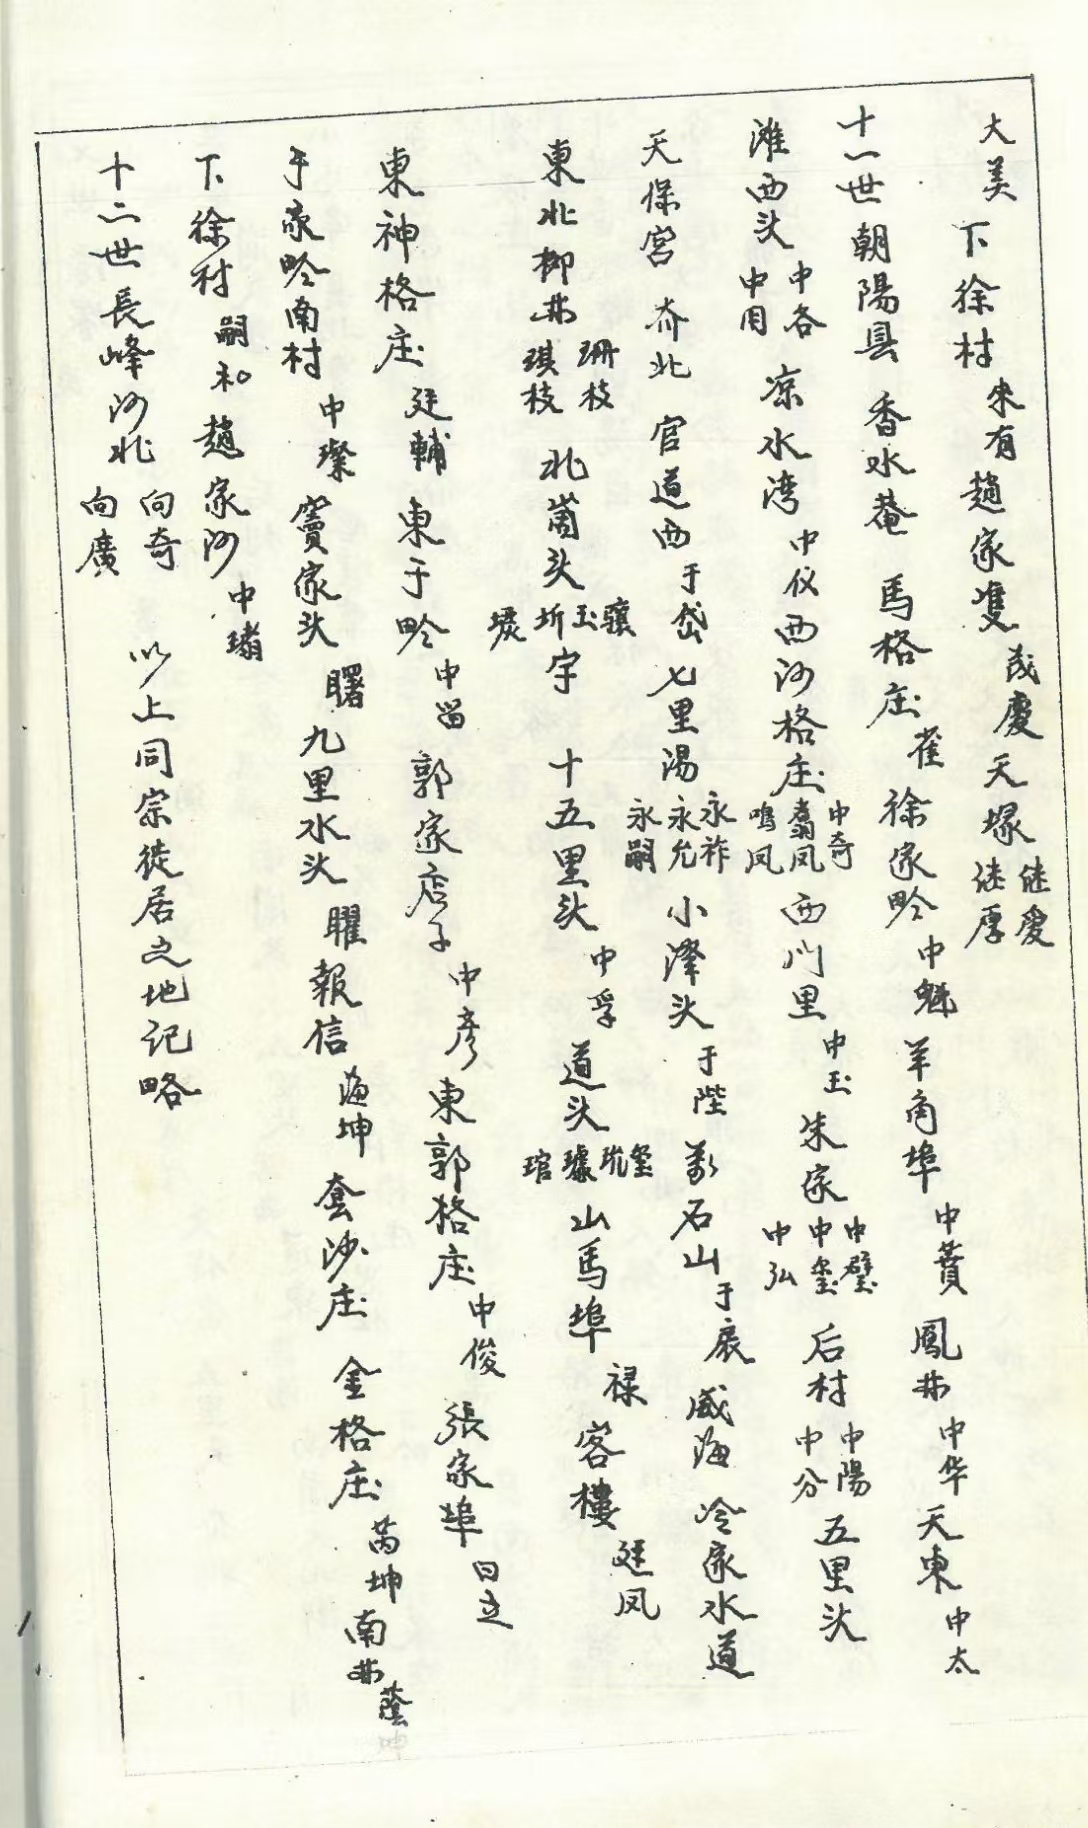 大美 下徐村 朱有 趙家 茂慶 天塚 继爱 继厚
十一世 朝陽县 香水菴 馬格庄 崔 徐家畛 中魁 羊角埠 中蕡 鳳井 中华 天東 中太
潍西头 中各 中用 凉水湾 中仪 西沙格庄 中奇 翥凤 鳴凤 西川里 中玉 朱家 中璧 中玺 中弘 后村 中陽 中分 五里头
天保宮 斉北 官道西 于岱 七里湯 永祚 永允 永嗣 小澤头 于陛 豹石山 于扆 威海 冷家水道
東北柳井 珊枝 琪枝 北崮头 玉 圻 宇 十五里头 中孚 道头 璽 珖 璩 琯 山馬埠 禄 客樓 廷凤
東神格庄 廷輔 東于畛 中留 郭家店子 中彥 東郭格庄 中俊 張家埠 曰立
于家畛南村 中璨 竇家头 曙 九里水头 曜 報信 海坤 套沙庄 金格庄 芮坤 南井 蔭坤
下徐村 嗣和 趙家沙 中瑃
十二世 長峰沙北 向奇 向廣 以上同宗徒居之地记略